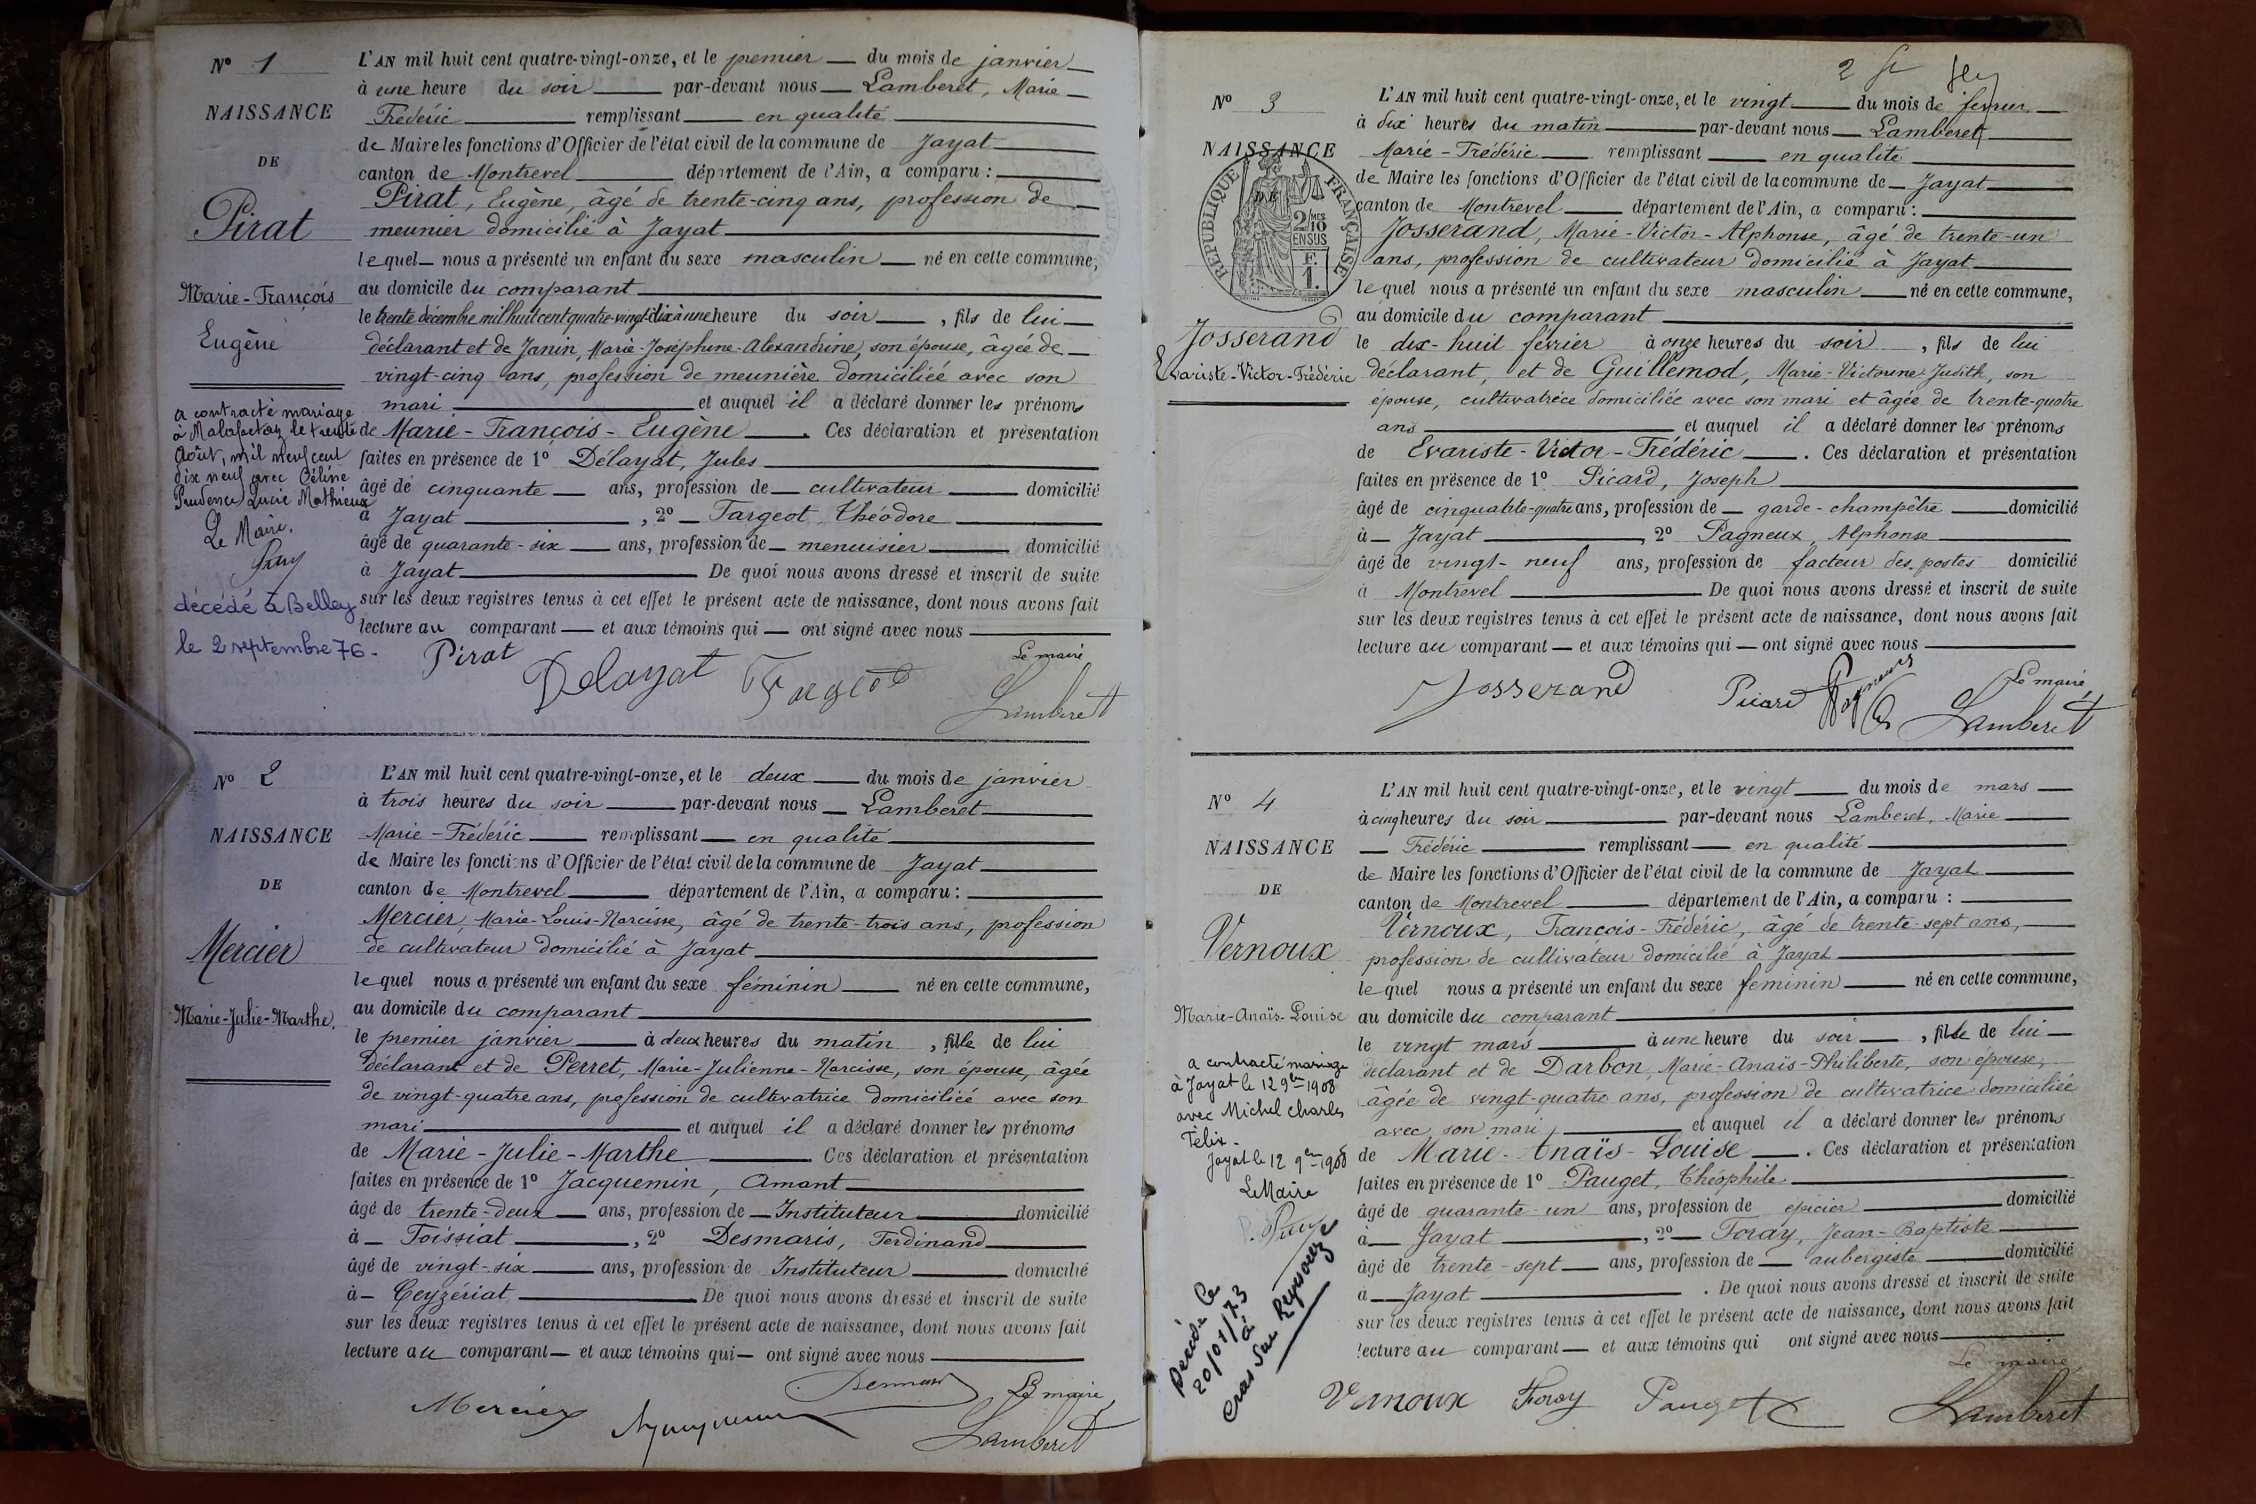 N° 1
NAISSANCE
DE
Pirat
Marie-François
Eugène
a contracté mariage
à Malafretaz le trente
Août, mil neuf cent
dix neuf avec Céline
Prudence Lucie Mathieux
Le Maire.
décédé à Belley
le 2 septembre 76.
L'AN mil huit cent quatre-vingt-onze, et le premier du mois de janvier
à une heure du soir par-devant nous Lamberet, Marie
Frédéric remplissant en qualité
de Maire les fonctions d'Officier de l'état civil de la commune de Jayat
canton de Montrevel département de l'Ain, a comparu :
Pirat, Eugène, âgé de trente-cinq ans, profession de
meunier domicilié à Jayat
lequel nous a présenté un enfant du sexe masculin né en cette commune,
au domicile du comparant
le trente décembre mil huit cent quatre-vingt-dix à une heure du soir, fils de lui
déclarant et de Janin, Marie-Joséphine-Alexandrine, son épouse, âgée de
vingt-cinq ans, profession de meunière domiciliée avec son
mari et auquel il a déclaré donner les prénoms
de Marie-François-Eugène. Ces déclaration et présentation
faites en présence de 1° Délayat, Jules
âgé de cinquante ans, profession de cultivateur domicilié
à Jayat, 2° Fargeot Théodore
âgé de quarante-six ans, profession de menuisier domicilié
à Jayat De quoi nous avons dressé et inscrit de suite
sur les deux registres tenus à cet effet le présent acte de naissance, dont nous avons fait
lecture au comparant et aux témoins qui ont signé avec nous
Le maire
Pirat Delayat Fargeot Lamberet
N° 2
NAISSANCE
DE
Mercier
Marie-Julie-Marthe.
L'AN mil huit cent quatre-vingt-onze, et le deux du mois de janvier
à trois heures du soir par-devant nous Lamberet
Marie-Frédéric remplissant en qualité
de Maire les fonctions d'Officier de l'état civil de la commune de Jayat
canton de Montrevel département de l'Ain, a comparu :
Mercier, Marie-Louis-Narcisse, âgé de trente-trois ans, profession
de cultivateur domicilié à Jayat
lequel nous a présenté un enfant du sexe féminin né en cette commune,
au domicile du comparant
le premier janvier à deux heures du matin, fille de lui
déclarant et de Perret, Marie-Julienne-Narcisse, son épouse, âgée
de vingt-quatre ans, profession de cultivatrice domiciliée avec son
mari et auquel il a déclaré donner les prénoms
de Marie-Julie-Marthe Ces déclaration et présentation
faites en présence de 1° Jacquemin, Amant
âgé de trente-deux ans, profession de Instituteur domicilié
à Foissiat, 2° Desmaris, Ferdinand
âgé de vingt-six ans, profession de Instituteur domicilié
à Ceyzériat De quoi nous avons dressé et inscrit de suite
sur les deux registres tenus à cet effet le présent acte de naissance, dont nous avons fait
lecture au comparant et aux témoins qui ont signé avec nous
Le maire
Mercier Lamberet
2
N° 3
NAISSANCE
DE
RÉPUBLIQUE FRANÇAISE
2/10 MES
EN SUS
F.
1.
Josserand
Evariste-Victor-Frédéric
L'AN mil huit cent quatre-vingt-onze, et le vingt du mois de février
à dix heures du matin par-devant nous Lamberet
Marie-Frédéric remplissant en qualité
de Maire les fonctions d'Officier de l'état civil de la commune de Jayat
canton de Montrevel département de l'Ain, a comparu :
Josserand, Marie-Victor-Alphonse, âgé de trente-un
ans, profession de cultivateur domicilié à Jayat
lequel nous a présenté un enfant du sexe masculin né en cette commune,
au domicile du comparant
le dix-huit février à onze heures du soir, fils de lui
déclarant, et de Guillemod, Marie-Victorine-Judith, son
épouse, cultivatrice domiciliée avec son mari et âgée de trente-quatre
ans et auquel il a déclaré donner les prénoms
de Evariste-Victor-Frédéric. Ces déclaration et présentation
faites en présence de 1° Picard, Joseph
âgé de cinquante-quatre ans, profession de garde-champêtre domicilié
à Jayat, 2° Pagneux, Alphonse
âgé de vingt-neuf ans, profession de facteur des postes domicilié
à Montrevel De quoi nous avons dressé et inscrit de suite
sur les deux registres tenus à cet effet le présent acte de naissance, dont nous avons fait
lecture au comparant et aux témoins qui ont signé avec nous
Le maire
Josserand Picard Pagneux Lamberet
N° 4
NAISSANCE
DE
Vernoux
Marie-Anaïs-Louise
a contracté mariage
à Jayat le 12 9bre 1908
avec Michel Charles
Félix.
Jayat le 12 9bre 1908
Le Maire
Décédée le
20/01/73
à
Cras sur Reyssouze
L'AN mil huit cent quatre-vingt-onze, et le vingt du mois de mars
à cinq heures du soir par-devant nous Lamberet, Marie
Frédéric remplissant en qualité
de Maire les fonctions d'Officier de l'état civil de la commune de Jayat
canton de Montrevel département de l'Ain, a comparu :
Vernoux, François-Frédéric, âgé de trente-sept ans,
profession de cultivateur domicilié à Jayat
lequel nous a présenté un enfant du sexe féminin né en cette commune,
au domicile du comparant
le vingt mars à une heure du soir, fille de lui
déclarant et de Darbon, Marie-Anaïs-Philiberte, son épouse,
âgée de vingt-quatre ans, profession de cultivatrice domiciliée
avec son mari et auquel il a déclaré donner les prénoms
de Marie-Anaïs-Louise. Ces déclaration et présentation
faites en présence de 1° Pauget, Théophile
âgé de quarante-un ans, profession de épicier domicilié
à Jayat, 2° Foray, Jean-Baptiste
âgé de trente-sept ans, profession de aubergiste domicilié
à Jayat. De quoi nous avons dressé et inscrit de suite
sur les deux registres tenus à cet effet le présent acte de naissance, dont nous avons fait
lecture au comparant et aux témoins qui ont signé avec nous
Le maire
Vernoux Foray Pauget Lamberet